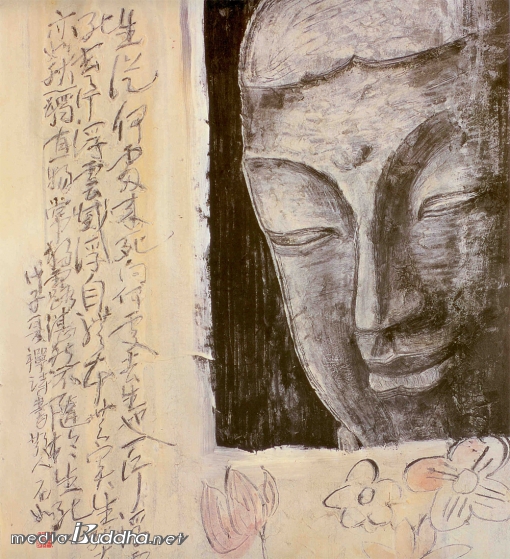 生從何處來死向何處去生也一片浮雲
死去片浮雲滅浮自體本無實生死
亦然獨一物常獨露湛然不隨生死
戊子夏禪詩書
mediaBuddha.net